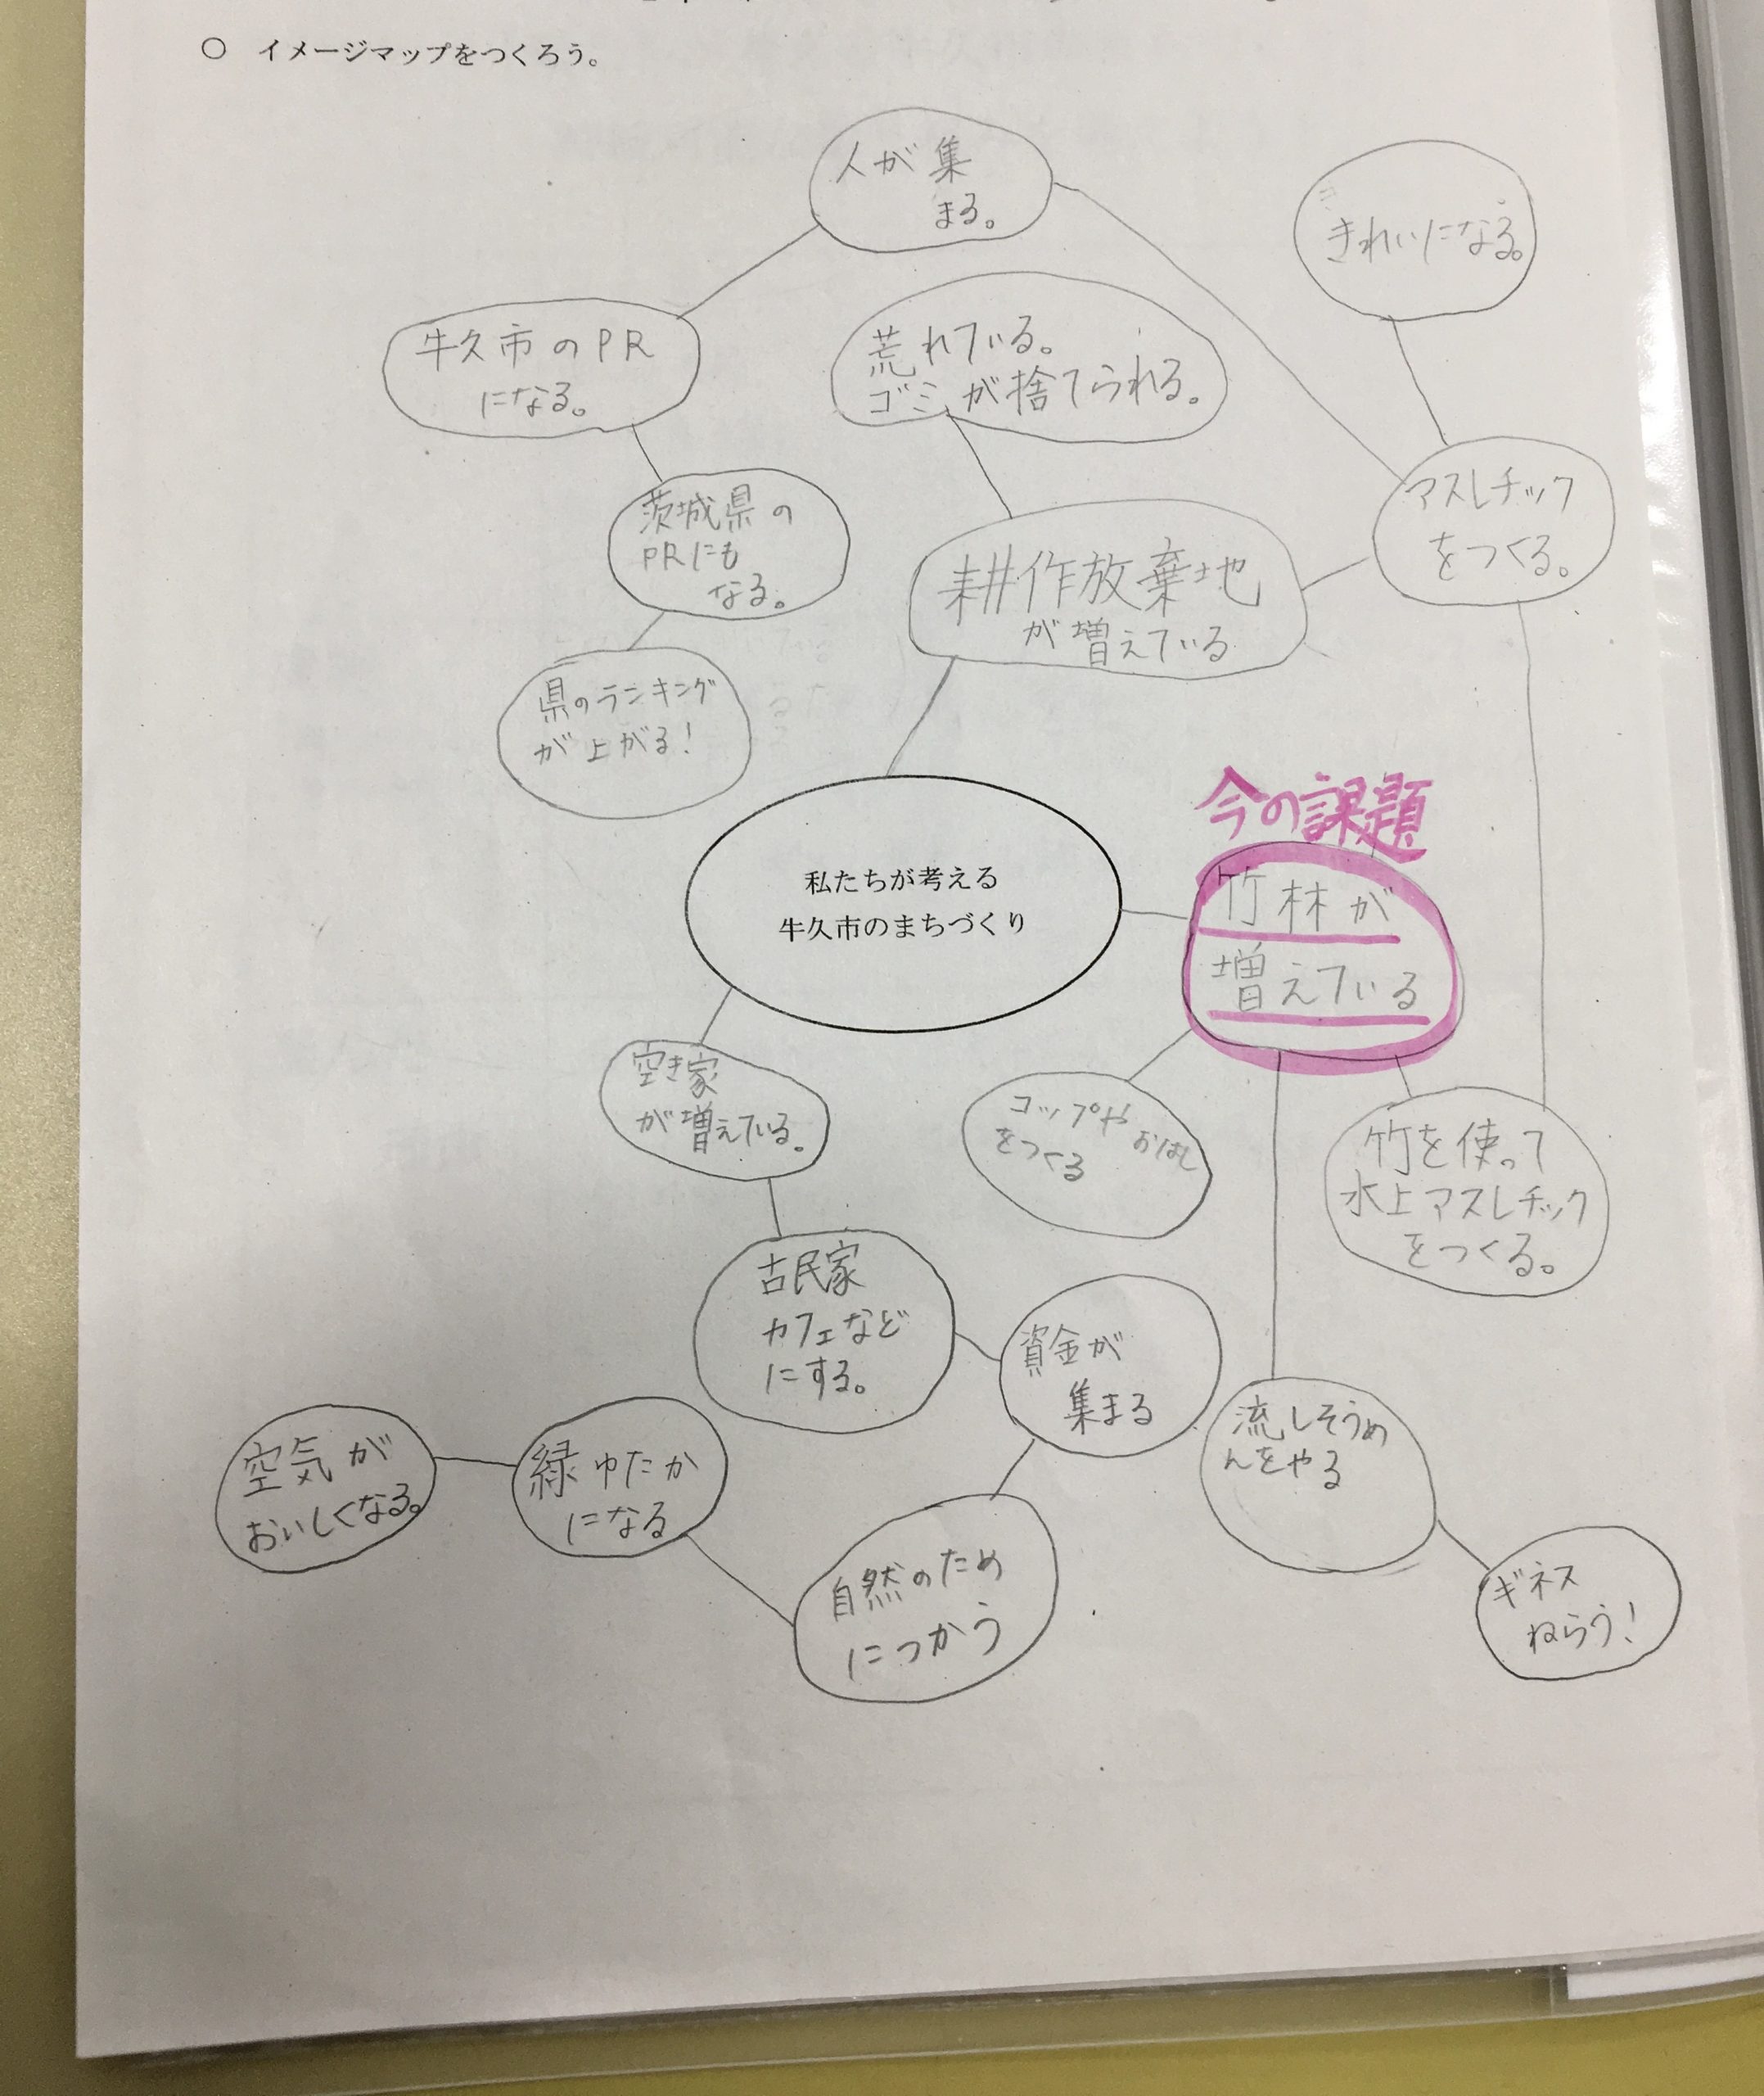 ○ イメージマップをつくろう。
人が集
まる。
きれいになる。
牛久市のPR
になる。
荒れている。
ゴミが捨てられる。
茨城県の
PRにも
なる。
アスレチック
をつくる。
耕作放棄地
が増えている
県のランキング
が上がる!
今の課題
竹林が
増えている
私たちが考える
牛久市のまちづくり
空き家
が増えている。
コップやおはし
をつくる
竹を使って
水上アスレチック
をつくる。
古民家
カフェなど
にする。
資金が
集まる
流しそうめ
んをやる
空気が
おいしくなる。
緑ゆたか
になる
自然のため
につかう
ギネス
ねらう!